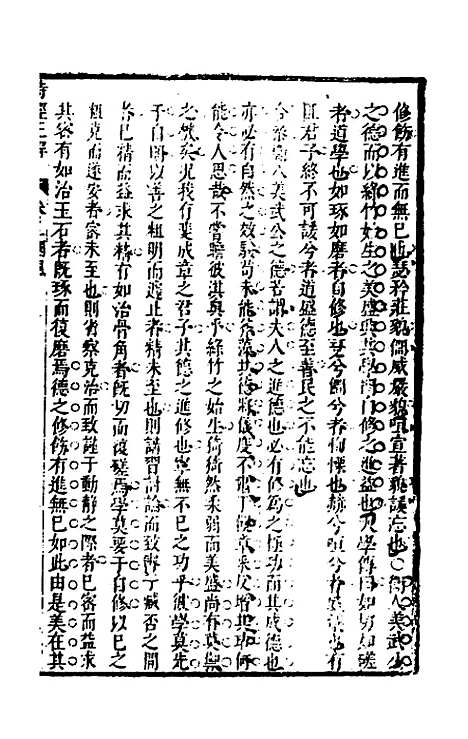 修飾有進而無已也瑟矜莊貌僩威嚴貌咺宣著貌諼忘也○衛人美武公
之德而以綠竹始生之美盛興其學問自修之進益也大學傳曰如切如磋
者道學也如琢如磨者自修也瑟兮僩兮者恂慄也赫兮咺兮者威儀也有
匪君子終不可諼兮者道盛德至善民之不能忘也
今夫人美武公之德若謂夫人之進德也必有修為之極功而其成德也
亦必有自然之效驗苟未能
能令人思哉不嘗瞻彼淇奧乎綠竹之始生猗猗然柔弱而美盛尚有莫禦
之機矣況我有斐成章之君子其德之進修也寧無不已之功乎彼學莫先
于自明以善之粗明而遽止者精未至也則講習討論而致辨于臧否之間
者已精而益求其精有如治骨角者既切而復磋焉學莫要于自修以已之
粗克而遂安者密未至也則省察克治而致謹于動靜之際者已密而益求
其密有如治玉石者既琢而復磨焉德之修飾有進無已如此由是美在其